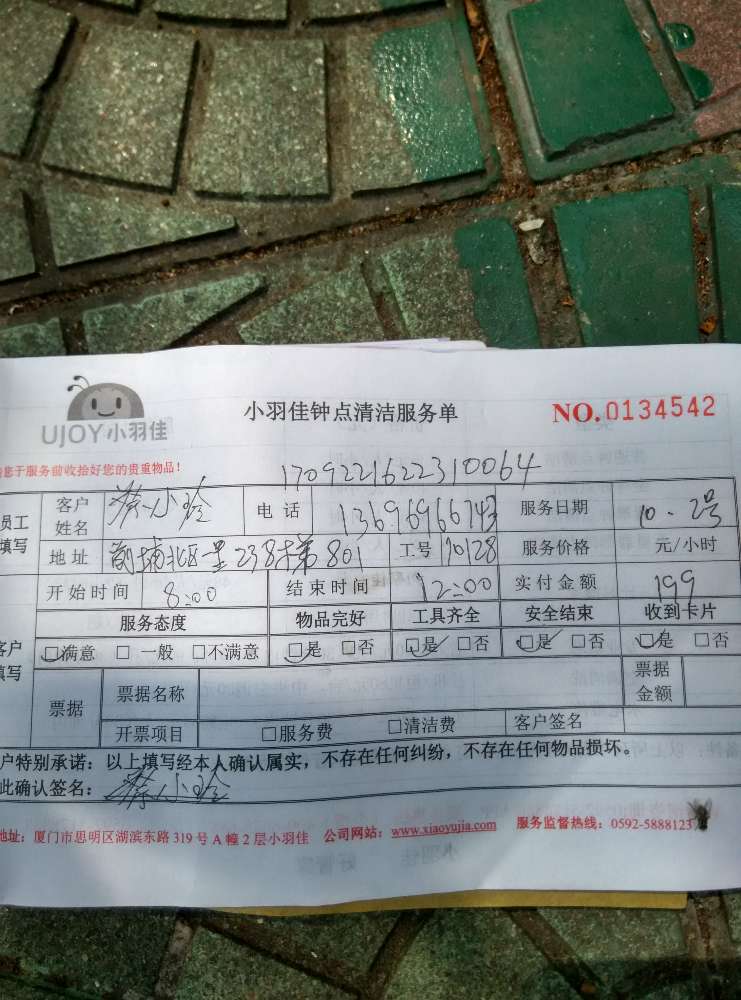 UJOY小羽佳
小羽佳钟点清洁服务单
NO.0134542
您于服务前收拾好您的贵重物品！
1709221622310064
员工填写
客户姓名 蔡小玲 电话 13696966743 服务日期 10.2号
地址 前埔北区里238梯801 工号 10128 服务价格 元/小时
开始时间 8:00 结束时间 12:00 实付金额 199
服务态度 物品完好 工具齐全 安全结束 收到卡片
客户填写
□满意 □一般 □不满意 □是 □否 □是 □否 □是 □否 □是 □否
票据 票据名称 票据金额
开票项目 □服务费 □清洁费 客户签名
户特别承诺：以上填写经本人确认属实，不存在任何纠纷，不存在任何物品损坏。
此确认签名：蔡小玲
地址：厦门市思明区湖滨东路319号A幢2层小羽佳 公司网站：www.xiaoyujia.com 服务监督热线：0592-5888123